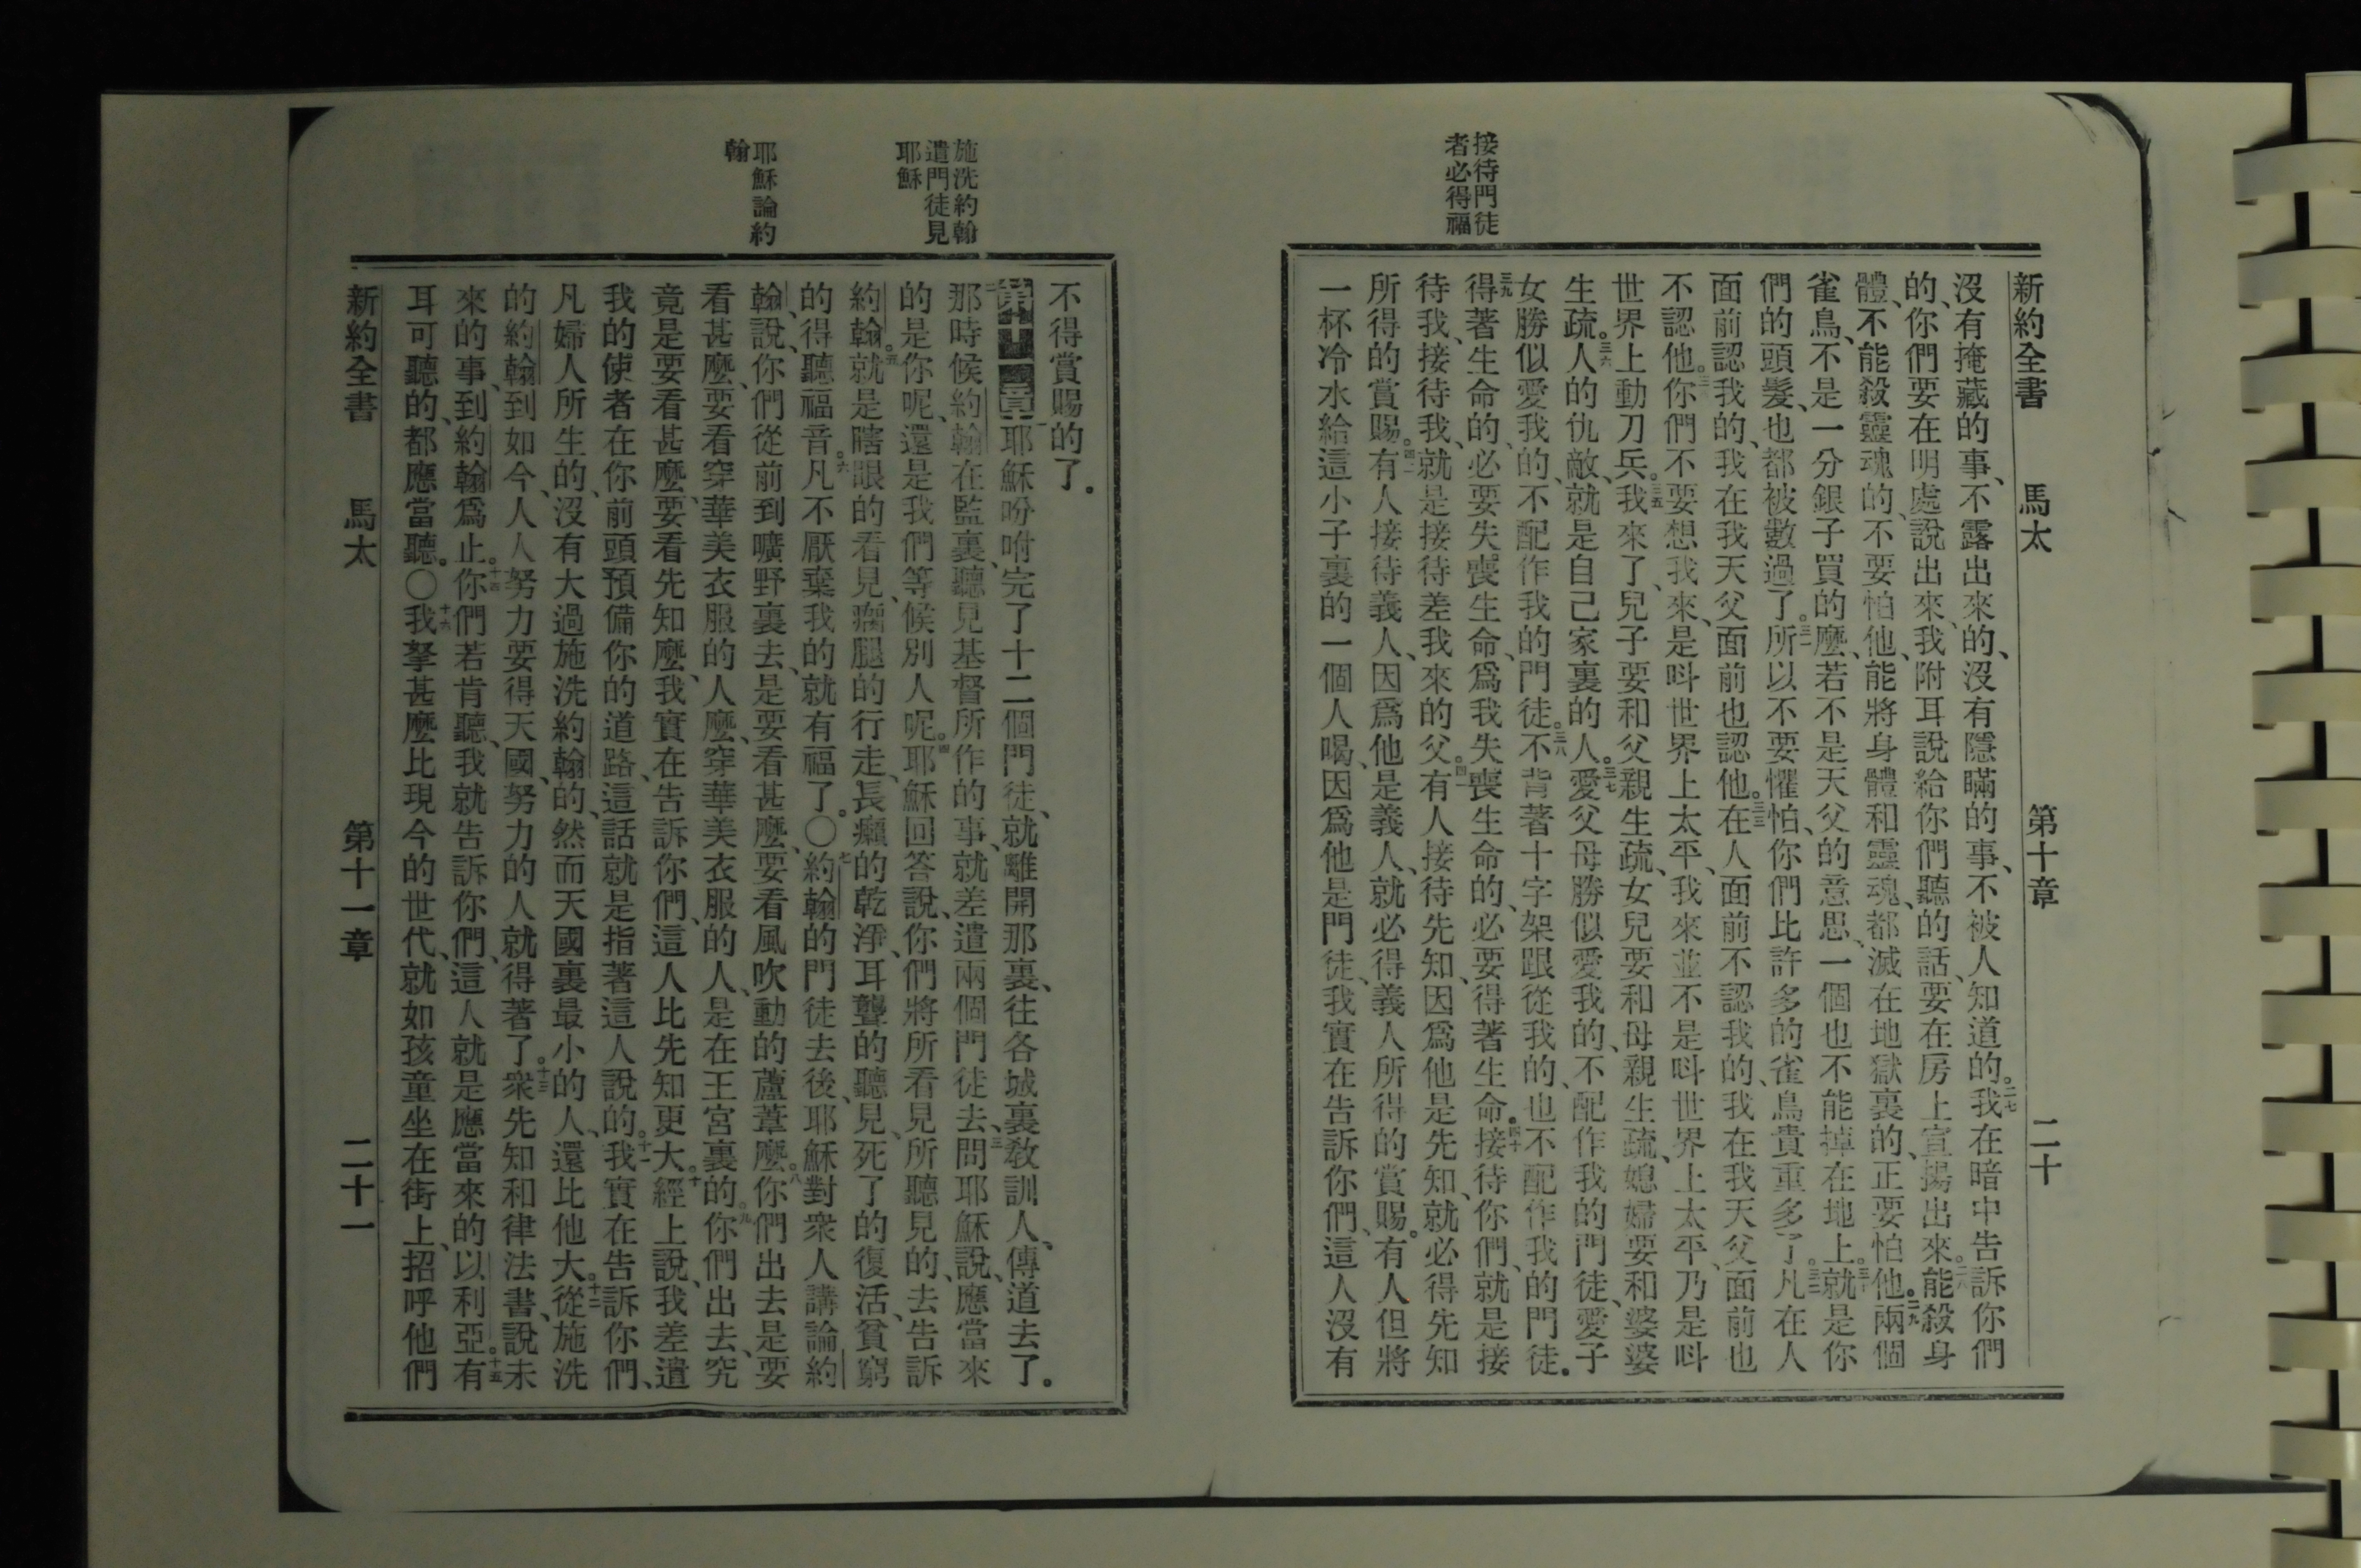 新約全書 馬太 第十章 二十
接待門徒
者必得福
沒有掩藏的事、不露出來的、沒有隱瞞的事、不被人知道的。二七我在暗中告訴你們
的、你們要在明處說出來、我附耳說給你們聽的話、要在房上宣揚出來。二八能殺身
體、不能殺靈魂的、不要怕他、能將身體和靈魂、都滅在地獄裏的、正要怕他。二九兩個
雀鳥、不是一分銀子買的麼、若不是天父的意思、一個也不能掉在地上。三十就是你
們的頭髮、也都被數過了。三一所以不要懼怕、你們比許多的雀鳥貴重多了。三二凡在人
面前認我的、我在我天父面前也認他。三三在人面前不認我的、我在我天父面前也
不認他。三四你們不要想我來、是呌世界上太平、我來並不是呌世界上太平、乃是呌
世界上動刀兵。三五我來了、兒子要和父親生疏、女兒要和母親生疏、媳婦要和婆婆
生疏。三六人的仇敵、就是自己家裏的人。三七愛父母勝似愛我的、不配作我的門徒、愛子
女勝似愛我的、不配作我的門徒。三八不背著十字架跟從我的、也不配作我的門徒。
三九得著生命的、必要失喪生命、爲我失喪生命的、必要得著生命。四十接待你們、就是接
待我、接待我、就是接待差我來的父。四一有人接待先知、因爲他是先知、就必得先知
所得的賞賜。四二有人接待義人、因爲他是義人、就必得義人所得的賞賜。有人但將
一杯冷水給這小子裏的一個人喝、因爲他是門徒、我實在告訴你們、這人沒有
施洗約翰
遣門徒見
耶穌
耶穌論約
翰
不得賞賜的了。
第十一章 一耶穌吩咐完了十二個門徒、就離開那裏、往各城裏敎訓人、傳道去了。
二那時候約翰在監裏、聽見基督所作的事、就差遣兩個門徒去、三問耶穌說、應當來
的是你呢、還是我們等候別人呢。四耶穌回答說、你們將所看見所聽見的、去告訴
約翰。五就是瞎眼的看見、瘸腿的行走、長癩的乾淨、耳聾的聽見、死了的復活、貧窮
的得聽福音。六凡不厭棄我的、就有福了。〇七約翰的門徒去後、耶穌對衆人講論約
翰、說、你們從前到曠野裏去、是要看甚麼、要看風吹動的蘆葦麼。八你們出去是要
看甚麼、要看穿華美衣服的人麼、穿華美衣服的人、是在王宮裏的。九你們出去、究
竟是要看甚麼、要看先知麼、我實在告訴你們、這人比先知更大。十經上說、我差遣
我的使者在你前頭預備你的道路、這話就是指著這人說的。十一我實在告訴你們、
凡婦人所生的、沒有大過施洗約翰的、然而天國裏最小的人、還比他大。十二從施洗
的約翰到如今、人人努力要得天國、努力的人就得著了。十三衆先知和律法書、說未
來的事、到約翰爲止。十四你們若肯聽、我就告訴你們、這人就是應當來的以利亞。十五有
耳可聽的、都應當聽。〇十六我拏甚麼比現今的世代、就如孩童坐在街上、招呼他們
新約全書 馬太 第十一章 二十一